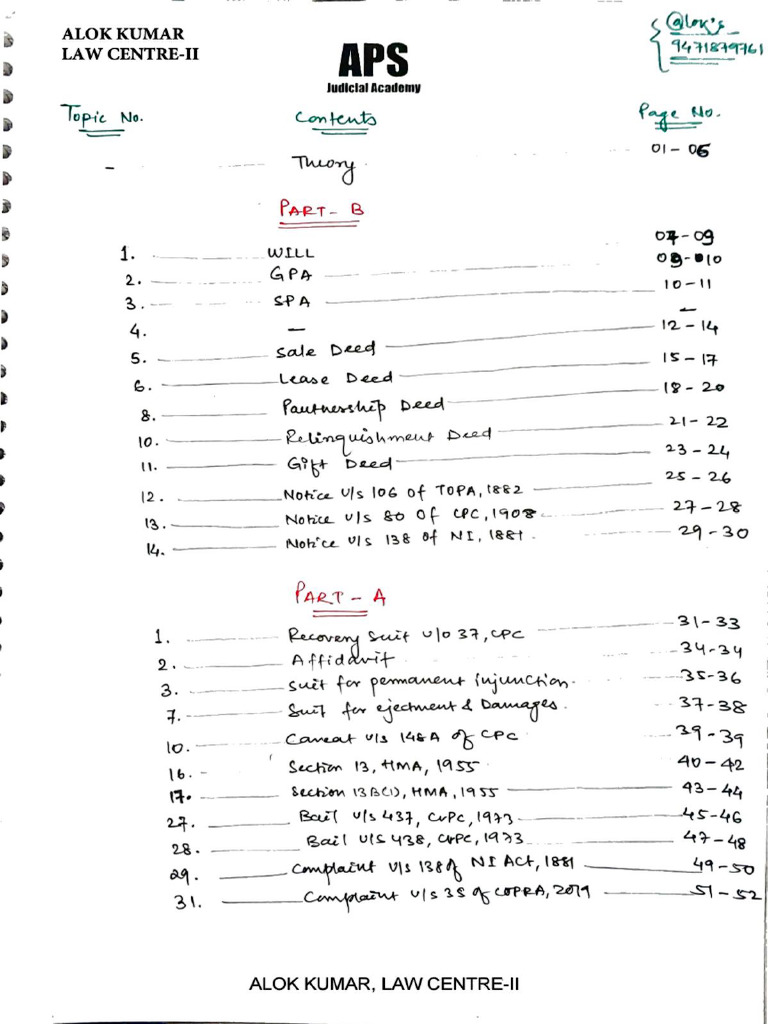 ALOK KUMAR
LAW CENTRE-II
APS
Judicial Academy
@lok's
9471879761
Topic No. Contents Page No.
- Theory 01-06
PART-B
1. WILL 07-09
2. GPA 09-010
3. SPA 10-11
4. — —
5. Sale Deed 12-14
6. Lease Deed 15-17
8. Partnership Deed 18-20
10. Relinquishment Deed 21-22
11. Gift Deed 23-24
12. Notice U/s 106 of TOPA, 1882 25-26
13. Notice U/s 80 Of CPC, 1908 27-28
14. Notice U/s 138 of NI, 1881. 29-30
PART-A
1. Recovery Suit U/O 37, CPC 31-33
2. Affidavit 34-34
3. Suit for permanent injunction. 35-36
7. Suit for ejectment & Damages. 37-38
10. Caveat U/s 148A of CPC 39-39
16. Section 13, HMA, 1955 40-42
17. Section 13B(1), HMA, 1955 43-44
27. Bail U/s 437, CrPC, 1973 45-46
28. Bail U/S 438, CrPC, 1973 47-48
29. Complaint U/s 138 of NI ACT, 1881 49-50
31. Complaint U/s 35 of COPRA, 2019 51-52
ALOK KUMAR, LAW CENTRE-II